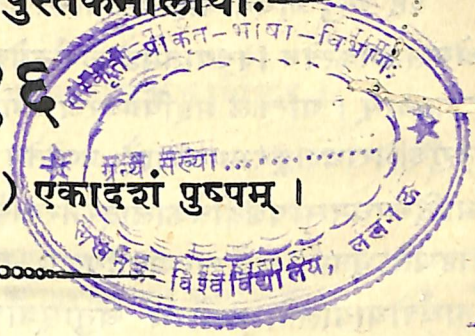 पुस्तकमालायाः
संस्कृत-प्राकृत-भाषा-विभागः
६
ग्रन्थ संख्या ................
) एकादशं पुष्पम् ।
लखनऊ विश्वविद्यालय, लखनऊ